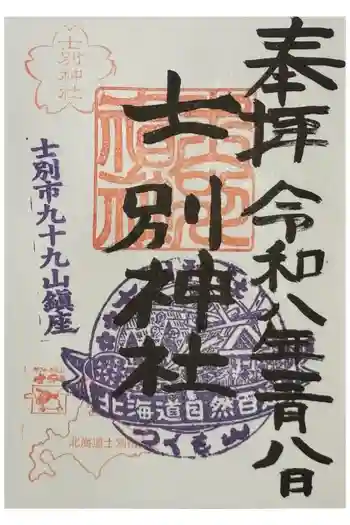 奉拝 令和八年二月八日
士別神社
士別神社
士別市九十九山鎮座
北海道自然百
つくも山
北海道士別